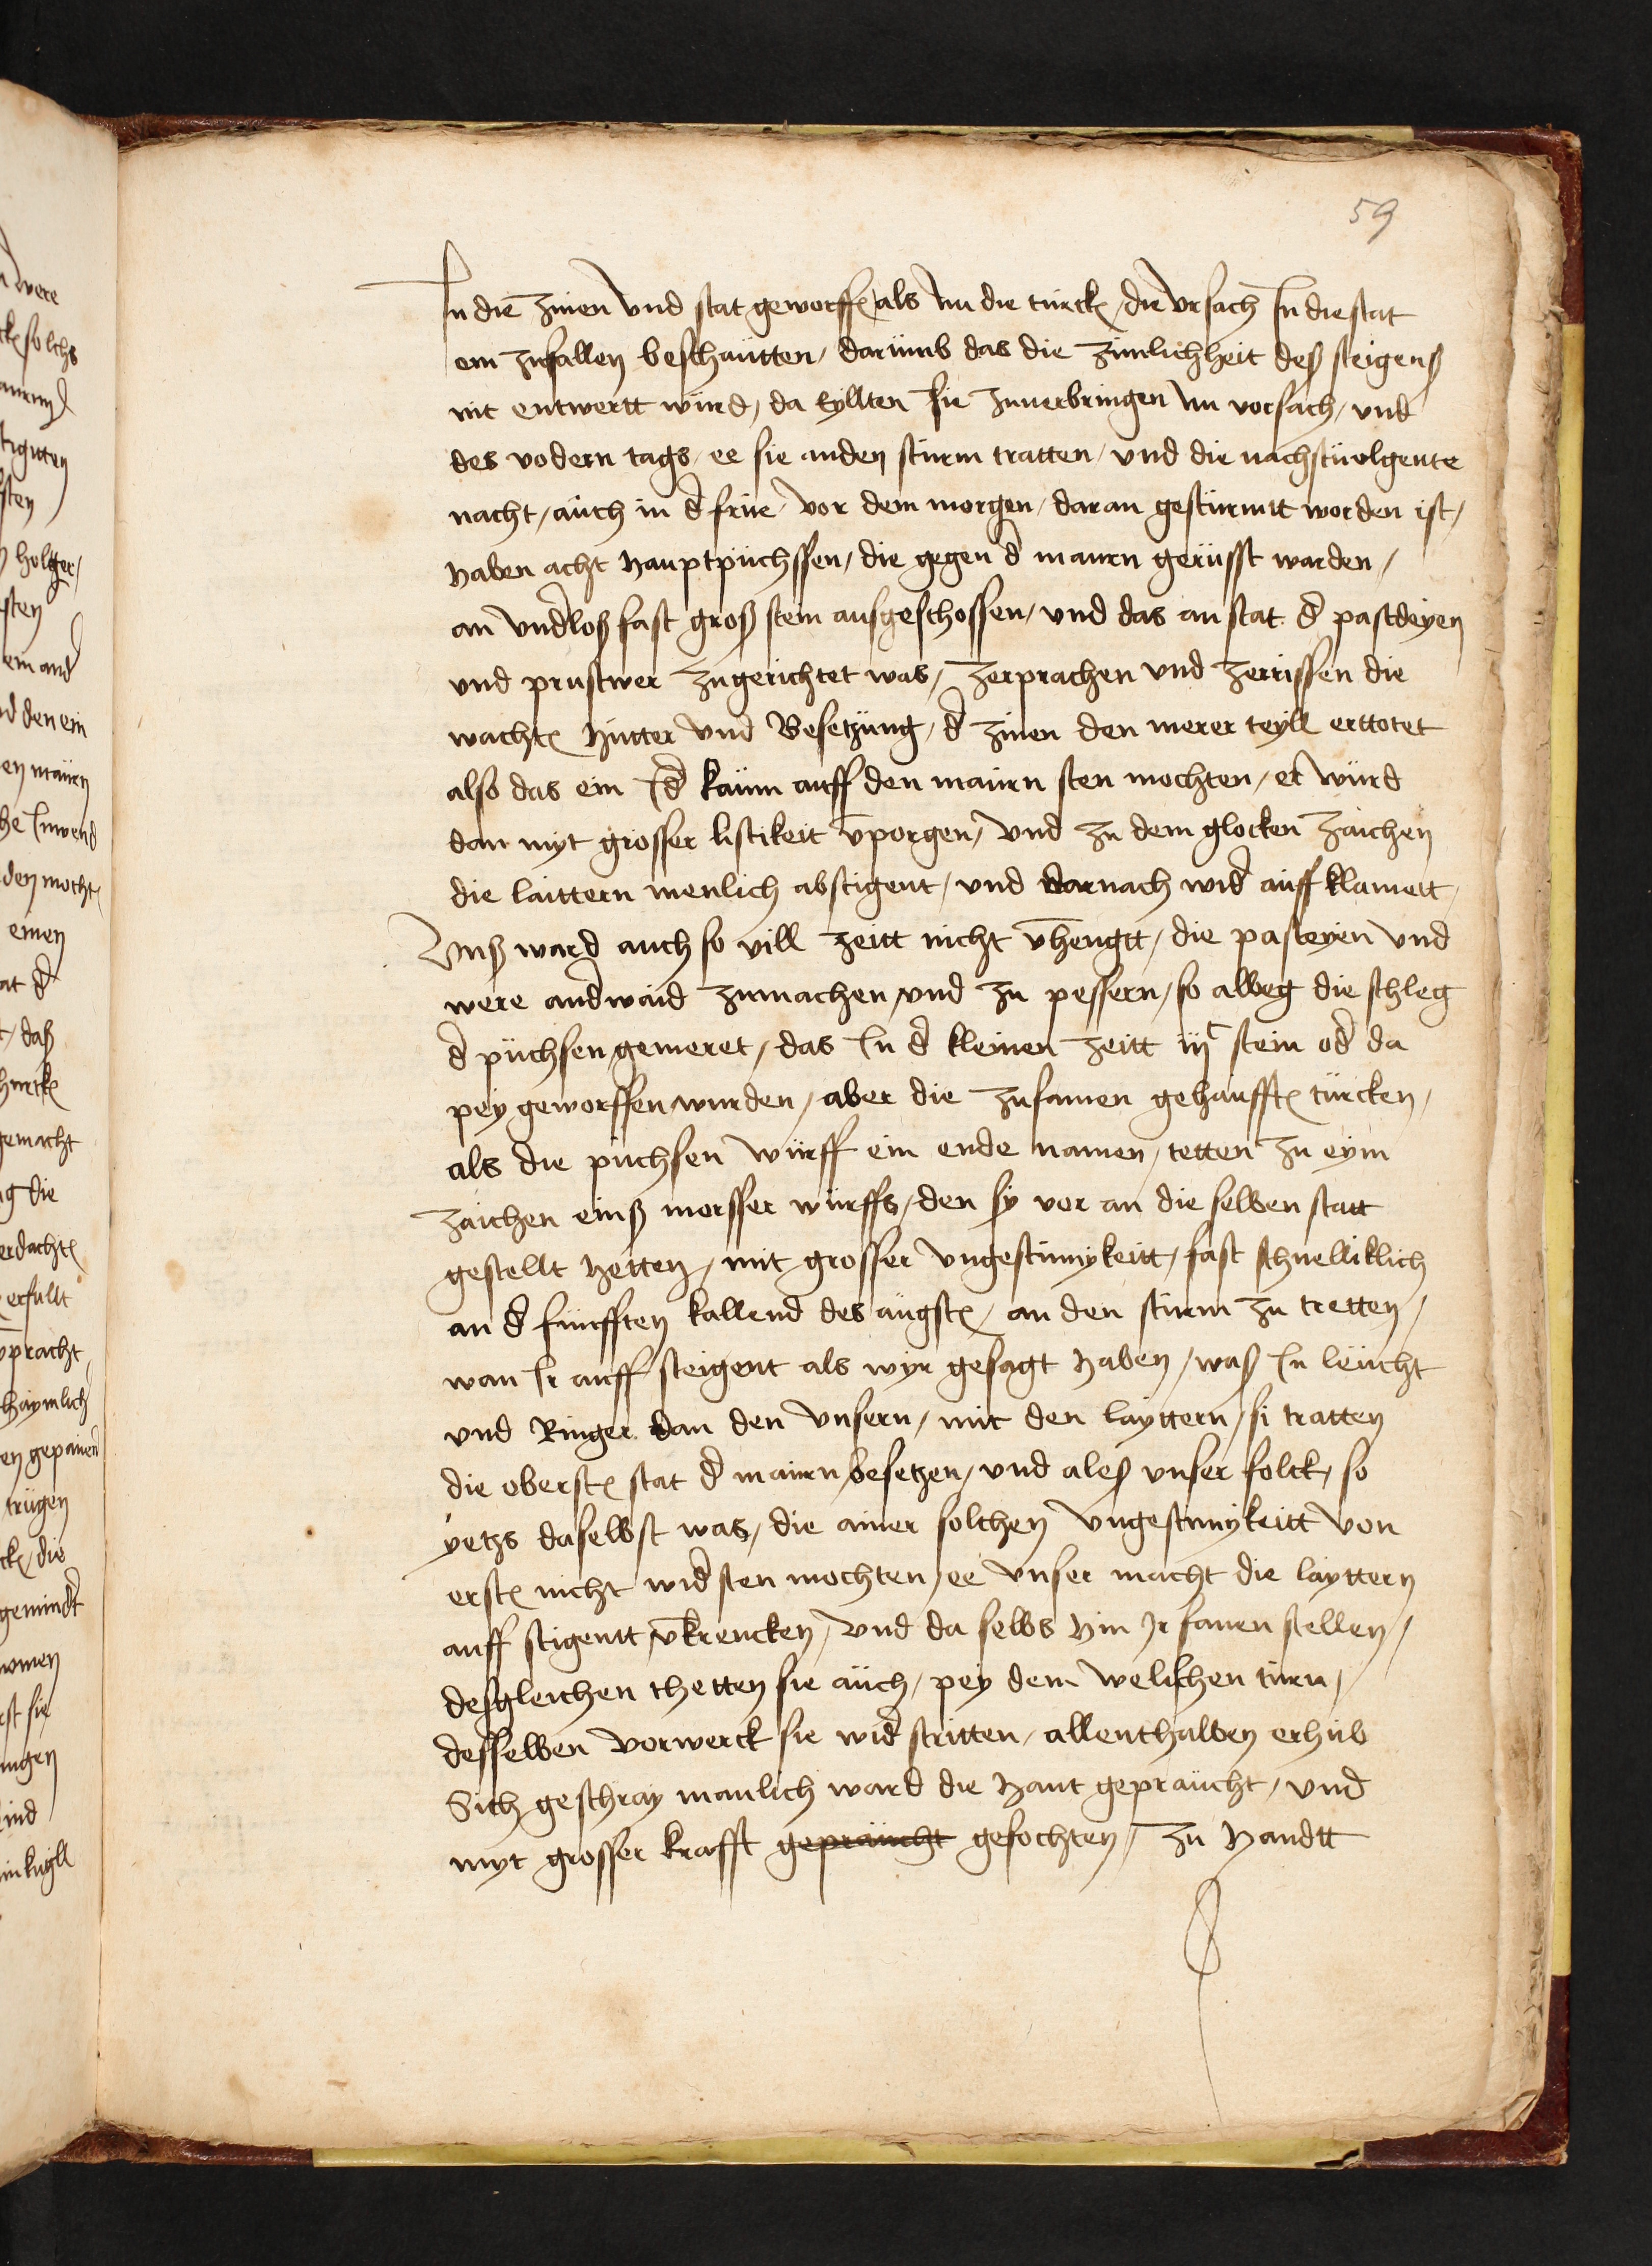 59
In die zinen vnd stat geworffen als nu die türcken die vrsach In die stat
ein zufallen beschautten / darümb das die zimlichheit deß steigens
nit entwertt würd / da eyllten sie zuuerbringen nu vorsach / vnd
des vodern tags / ee sie anden sturm tratten / vnd die nachstüolgente
nacht / auch in d frue vor dem morgen / daran gesturmtt worden ist /
haben acht hauptpüchssen / die gegen d maurn gerüsst warden /
an vndloß fast groß stein ausgeschossen / vnd das an stat d pastdeyen
vnd prustwer zugerichtet was / zerprachen vnd zerrissen die
wachten hütter vnd Besetzung / d zinen den merer teyll erttotet
also das ein Id kaum auff den maurn sten mochten / er würd
dan myt grosser listikeit vporgen / vnd zu dem glocken zaichen
die laittern menlich abstigent / vnd darnach wid auff klamett
Vnß ward auch so vill zeitt nicht vhengtt / die pasteyen vnd
were andwaid zumachen / vnd zu pessern / so alweg die schleg
d püchsen gemeret / das In d kleinen zeitt iijc stein od da
pey geworffen wurden / aber die zusamen gehaufften türcken /
als die püchsen würff ein ende namen / tetten zu eym
zaichen einß morsser würffs / den sy vor an die selben statt
gestellt hetten / mit grosser vngestumykeitt / fast schnelliklich
an d fünfften kallend des augsten / an den sturm zu tretten /
wan Ir auff steigent als wyr gesagt haben / waß In leücht
vnd Ringer dan den vnsern / mit den layttern / si tratten
die obersten stat d maurn besetzen / vnd aleß vnser folck / so
yetzs daselbst was / die ainer solchen vngestumykeitt von
ersten nicht widsten mochten / ee vnser macht die layttern
auff stigentt vkrencken / vnd da selbs hin Ir fanen stellen /
desgleichen thetten sie auch / pey dem welischen turn /
desselben vorwerck sie wid stritten / allenthalben erhub
Sich geschray manlich ward die hant gepraucht / vnd
myt grosser krafft gepraucht gefochten / zu handtt